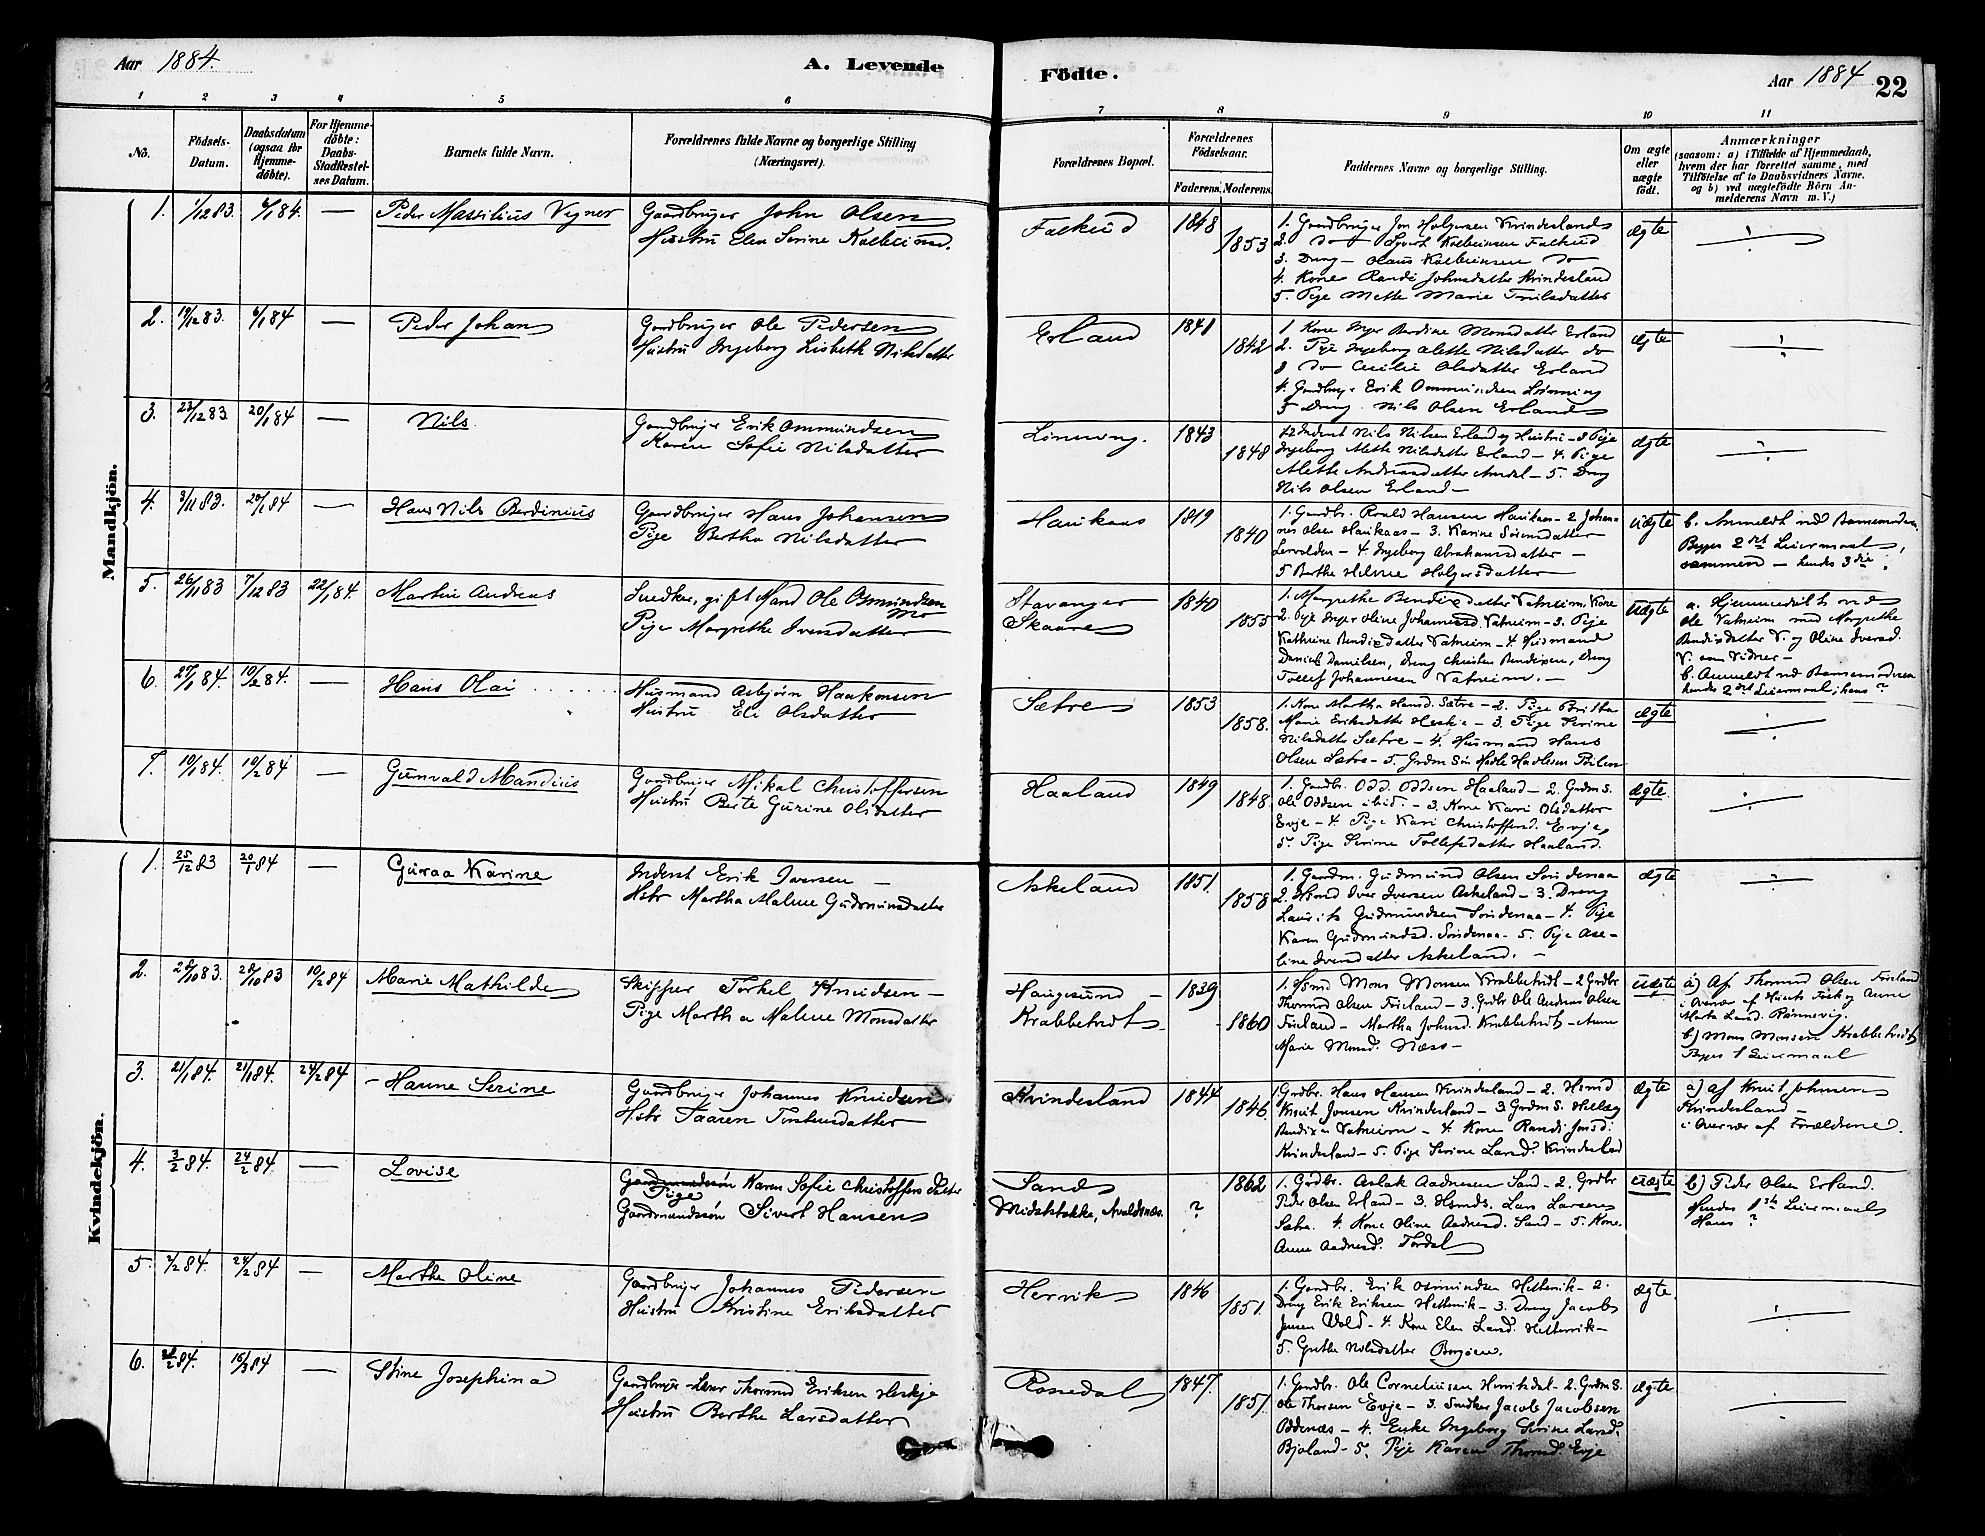 Aar 1884.
A. Levende
Födte.
Aar 1884
22
1 2 3 4 5 6 7 8 9 10 11
No.
Födsels-Datum.
Daabsdatum (ogsaa for Hjemmedöbte).
For Hjemmedöbte: Daabs-Stadfæstelses Datum.
Barnets fulde Navn.
Forældrenes fulde Navne og borgerlige Stilling (Næringsvei).
Forældrenes Bopæl.
Forældrenes Födselsaar.
Faderens. Moderens.
Faddernes Navne og borgerlige Stilling.
Om ægte eller uægte födt.
Anmærkninger
(saasom: a) i Tilfælde af Hjemmedaab, hvem der har forrettet samme, med Tilföielse af to Daabsvidners Navne, og b) ved uægtefödte Börn Anmelderens Navn m. V.)
Mandkjön.
1. 1/12 83. 6/1 84. — Peder Massilius Vegner
Gaardbruger John Olsen
Hustru Elen Serine Kolbeinsd.
Falkeid 1848 1853
1. Gaardbruger Jon Holgersen Kvindesland
2. do Sjurt Kolbeinsen Falkeid
3. Dreng – Olaus Kolbeinsen do
4. Kone Randi Johnsdatter Kvindesland
5. Pige Mette Marie Troilsdatter
ægte
2. 19/12 83. 6/1 84 — Peder Johan
Gaardbruger Ole Pedersen
Hustru Ingeborg Lisbeth Nilsdatter
Erland 1841 1842
1 Kone Inger Berdine Monsdatter Erland
2. Pige Ingeborg Alette Nilsdatter do
3 do Cecilie Olsdatter Erland
4. Gaardbrug. Erik Ommundsen Lönning
5 Dreng. Nils Olsen Erland
ægte
3. 23/12 83. 20/1 84 — Nils.
Gaardbruger Erik Ommundsen
Karen Sofie Nilsdatter
Lönning. 1843 1848
1.2 Inderst Nils Nilsen Erland og Hustru – 3 Pige
Ingeborg Alette Nilsdatter Erland – 4. Pige
Alette Andreasdatter – 5. Dreng
Nils Olsen Erland –
ægte
4. 3/11 83. 20/1 84 — Hans Nils Berdinius
Gaardbruger Hans Johansen
Pige Bertha Nilsdatter
Haukaas 1819 1840
1. Gaardbr. Roald Hansen Haukaas – 2 Johannes Olsen Haukaas – 3. Karine Sörensdatter
– 4 Ingeborg Abrahamsdatter –
5 Berthe Helene Holgersdatter
uægte
b. Anmeldt ved Barnemoderen
Begges 2det Leiermaal
sammen – hendes 3die.
5. 26/11 83 7/12 83 22/1 84. Martin Andreas
Snedker, gift Mand Ole Osmundsen
Pige Margrethe Iversdatter
Stavanger
Skaare
1840 1855
1. Margrethe Bendixdatter Vatneim, Kone
2. Pige Inger Oline Johannesd. Vatneim – 3. Pige
Kathrine Bendixdatter Vatneim – 4 Husmand
Daniel Danielsen, Dreng Christen Bendixen, Dreng
Tollef Johannesen Vatneim. –
uægte
a. Hjemmedöbt ved
Ole Vatneim med Margrethe
Bendixdatter V. og Oline Iversd.
V. som Vidner –
b. Anmeldt ved Barnemoderen
hendes 2det Leiermaal; hans?
6. 27/1 84. 10/2 84. — Hans Olai
Husmand Asbjörn Haakonsen
Hustru Eli Olsdatter
Sætre 1853 1858.
1. Kone Martha Hansd. Sætre – 2. Pige Britha
Marie Eriksdatter Heskje – 3. Pige Serine
Nilsdatter Sætre – 4. Husmand Hans
Olsen Sætre – 5. Grdm. Sön
ægte
7. 10/1 84. 10/2 84 — Gunvald Mandius
Gaardbruger Mikal Christoffersen
Hustru Berte Gurine Olsdatter
Haaland 1849 1848.
1. Gaardbr. Odd Oddsen Haaland – 2. Grdm S.
Ole Oddsen ibid. – 3. Kone Kari Olsdatter
Evje – 4 Pige Kari Christoffersd. Evje
5. Pige Serine Tollefsdatter Haaland.
ægte.
Kvindekjön.
1. 25/12 83 20/1 84 — Guraa Karine
Inderst Erik Iversen –
Hstr Martha Malene Gudmunsdatter
Askeland 1851. 1858
1. Gaardm. Gudmund Olsen Söndenaa
2. Hsmd Iver Iversen Askeland – 3. Dreng
Laurits Gudmundsen Söndenaa – 4. Pige
Karen Gudmundsd. Söndenaa – 5. Pige Aseline Iversdatter Askeland. –
ægte
2. 28/10 83. 28/10 83 10/2 84 Marie Mathilde
Skipper Torkel Knudsen –
Pige Martha Malene Monsdatter
Haugesund –
Krabbetvedt
1839 1860
1. Hsmd Mons Monsen Krabbetvedt – 2 Grdbr
Thormod Olsen Fruland – 3. Grdbr Ole Andreas Olsen
Frueland – Martha Johnsd. Krabbetvedt – Anne
Marie Monsd. Næss –
uægte
a) Af Thormod Olsen Frueland
i Overvær af og Anne
Marta Larsd. Rönnevig.
b) Mons Monsen Krabbetvedt
Begges 1 Leiermaal
3. 21/1 84. 21/1 84. 24/2 84 – Hanne Serine
Gaardbruger Johannes Knudsen
Hstr Taaren Torstensdatter
Kvindesland 1844 1846.
1. Grdbr. Hans Hansen Kvindesland – 2. Hsmd
Knut Jonsen Kvindesland – 3. Grdm S. Helleg
Bendixen Vatneim – 4. Kone Randi Jonsd:
Kvindesland – 5. Pige Serine Larsd. Kvindesland
ægte
a) af Knut Johnsen
Kvindesland –
i Overvær af Forældrene.
4. 3/2 84. 24/2 84. — Lovise
Pige Karen Sofie Christoffersdatter
Gaardmandssön Sivert Hansen
Sand
Midststokke, Avaldsnæs.
? 1862
1. Grdbr. Aslak Aadnesen Sand – 2. Grdbr
Peder Olsen Erland – 3. Hsmds. Lars Larsen
Sætre. 4. Kone Oline Aadnesd. Sand – 5. Kone
Anne Aadnesd. Tordal
uægte
b) Peder Olsen Erland.
Hendes 1ste Leiermaal
Hans?
5. 2/2 84. 24/2 84 — Marthe Oline
Gaardbruger Johannes Pedersen
Hustru Kristine Eriksdatter
Hervik 1846 1851.
1. Gaardbr. Erik Osmundsen Hettervik – 2.
Dreng Erik Eriksen Hettervik – 3. Dreng Jacob
Jensen Vold – 4 Kone Elen Larsd. Hettervik –
5. Grethe Nilsdatter
ægte.
6. 2/2 84. 16/3 84 — Stine Josephina
Gaardbruger Thormod Eriksen Heskje
Hustru Berthe Larsdatter
Rossedal 1847. 1851.
1. Gaardbr. Ole Corneliusen – 2. Grdm S.
Ole Thorsen Evje – 3. Snedker Jacob Jacobsen
Oddenæs – 4. Enke Ingeborg Serine Larsd.
Bjoland – 5. Pige Karen Thormd. Evje
ægte